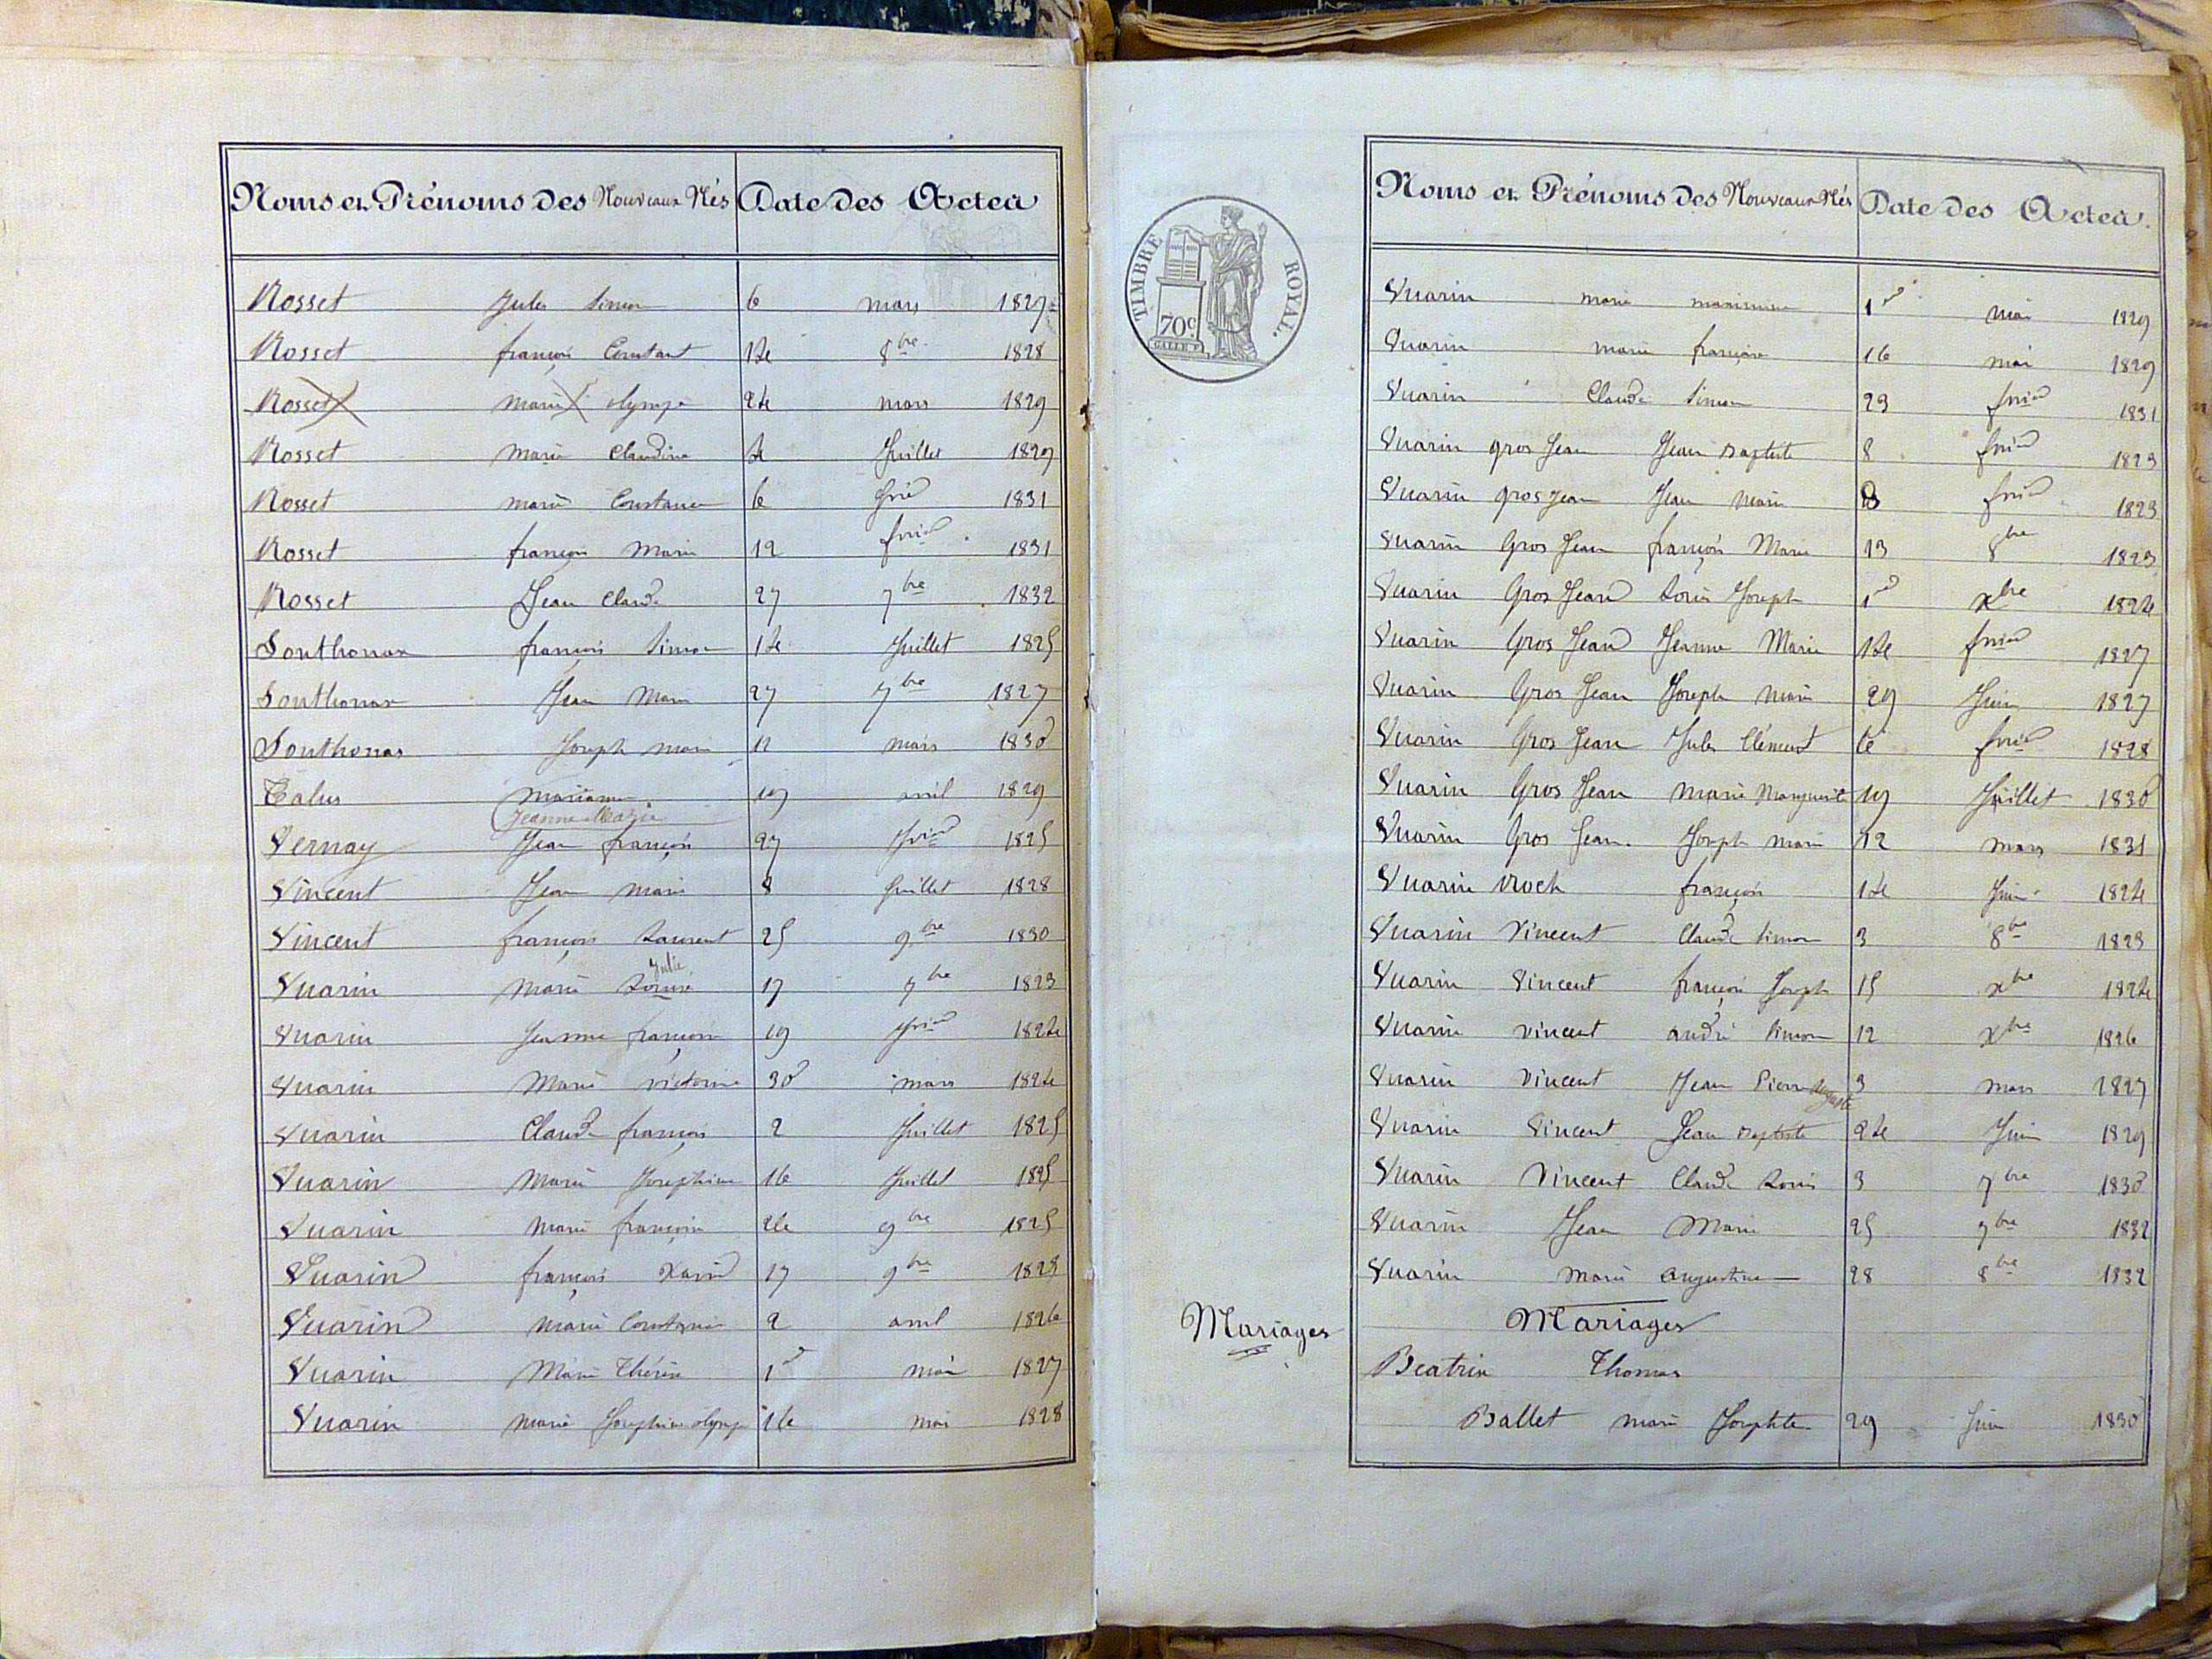 Noms et Prénoms des Nouveaux Nés Date des Actes
Rosset Jules Simon 6 mars 1827
Rosset françois Constant 14 8bre 1828
Rosset marie olympe 24 mars 1829
Rosset marie Claudine 4 Juillet 1829
Rosset marie Constance 6 1831
Rosset françois Marie 12 fvrier 1831
Rosset Jean Claude 27 7bre 1832
Sonthonnax françois Simon 14 Juillet 1825
Sonthonax Jean Marie 27 7bre 1827
Sonthonas Joseph marie 11 mars 1830
Talus marianne 19 avril 1829
Jeanne Marie
Vernay Jean françois 27 1825
Vincent Jean marie 8 Juillet 1828
Vincent françois Laurent 25 9bre 1830
Julie
Vuarin Marie Louise 17 7bre 1823
Vuarin Jeanne françoise 19 1824
Vuarin Marie victorine 30 mars 1824
Vuarin Claude françois 2 Juillet 1825
Vuarin Marie Josephine 16 Juillet 1825
Vuarin Marie françoise 26 9bre 1825
Vuarin françois Xavier 17 9bre 1828
Vuarin Marie 2 avril 1826
Vuarin Marie Thérèse 1er mai 1827
Vuarin Marie Josephine olympe 16 mai 1828
TIMBRE ROYAL.
70c
Noms et Prénoms des Nouveaux Nés Date des Actes.
Vuarin marie 1er mai 1829
Vuarin marie françoise 16 mai 1829
Vuarin Claude Simon 23 fvrier 1831
Vuarin gros Jean Jean Baptiste 8 fvrier 1823
Vuarin gros Jean Jean Marie 8 fvrier 1823
Vuarin Gros Jean françois Marie 13 8bre 1823
Vuarin Gros Jean Louis Joseph 1er xbre 1824
Vuarin Gros Jean Jeanne Marie 14 fvrier 1827
Vuarin Gros Jean Joseph Marie 29 Juin 1827
Vuarin Gros Jean Jules Clément 6 fvrier 1828
Vuarin Gros Jean Marie Marguerite 19 Juillet 1830
Vuarin Gros Jean Joseph Marie 12 mars 1831
Vuarin Roch françois 14 Juin 1824
Vuarin Vincent Claude Simon 3 8bre 1823
Vuarin Vincent françois Joseph 15 xbre 1824
Vuarin Vincent andré Simon 12 xbre 1826
Vuarin Vincent Jean Pierre auguste 3 mars 1827
Vuarin Vincent Jean Baptiste 24 Juin 1829
Vuarin Vincent Claude Louis 3 7bre 1830
Vuarin Jean Marie 25 7bre 1832
Vuarin Marie augustine 28 8bre 1832
Mariages Mariages
Beatrix Thomas
Ballet marie Josephte 29 Juin 1830